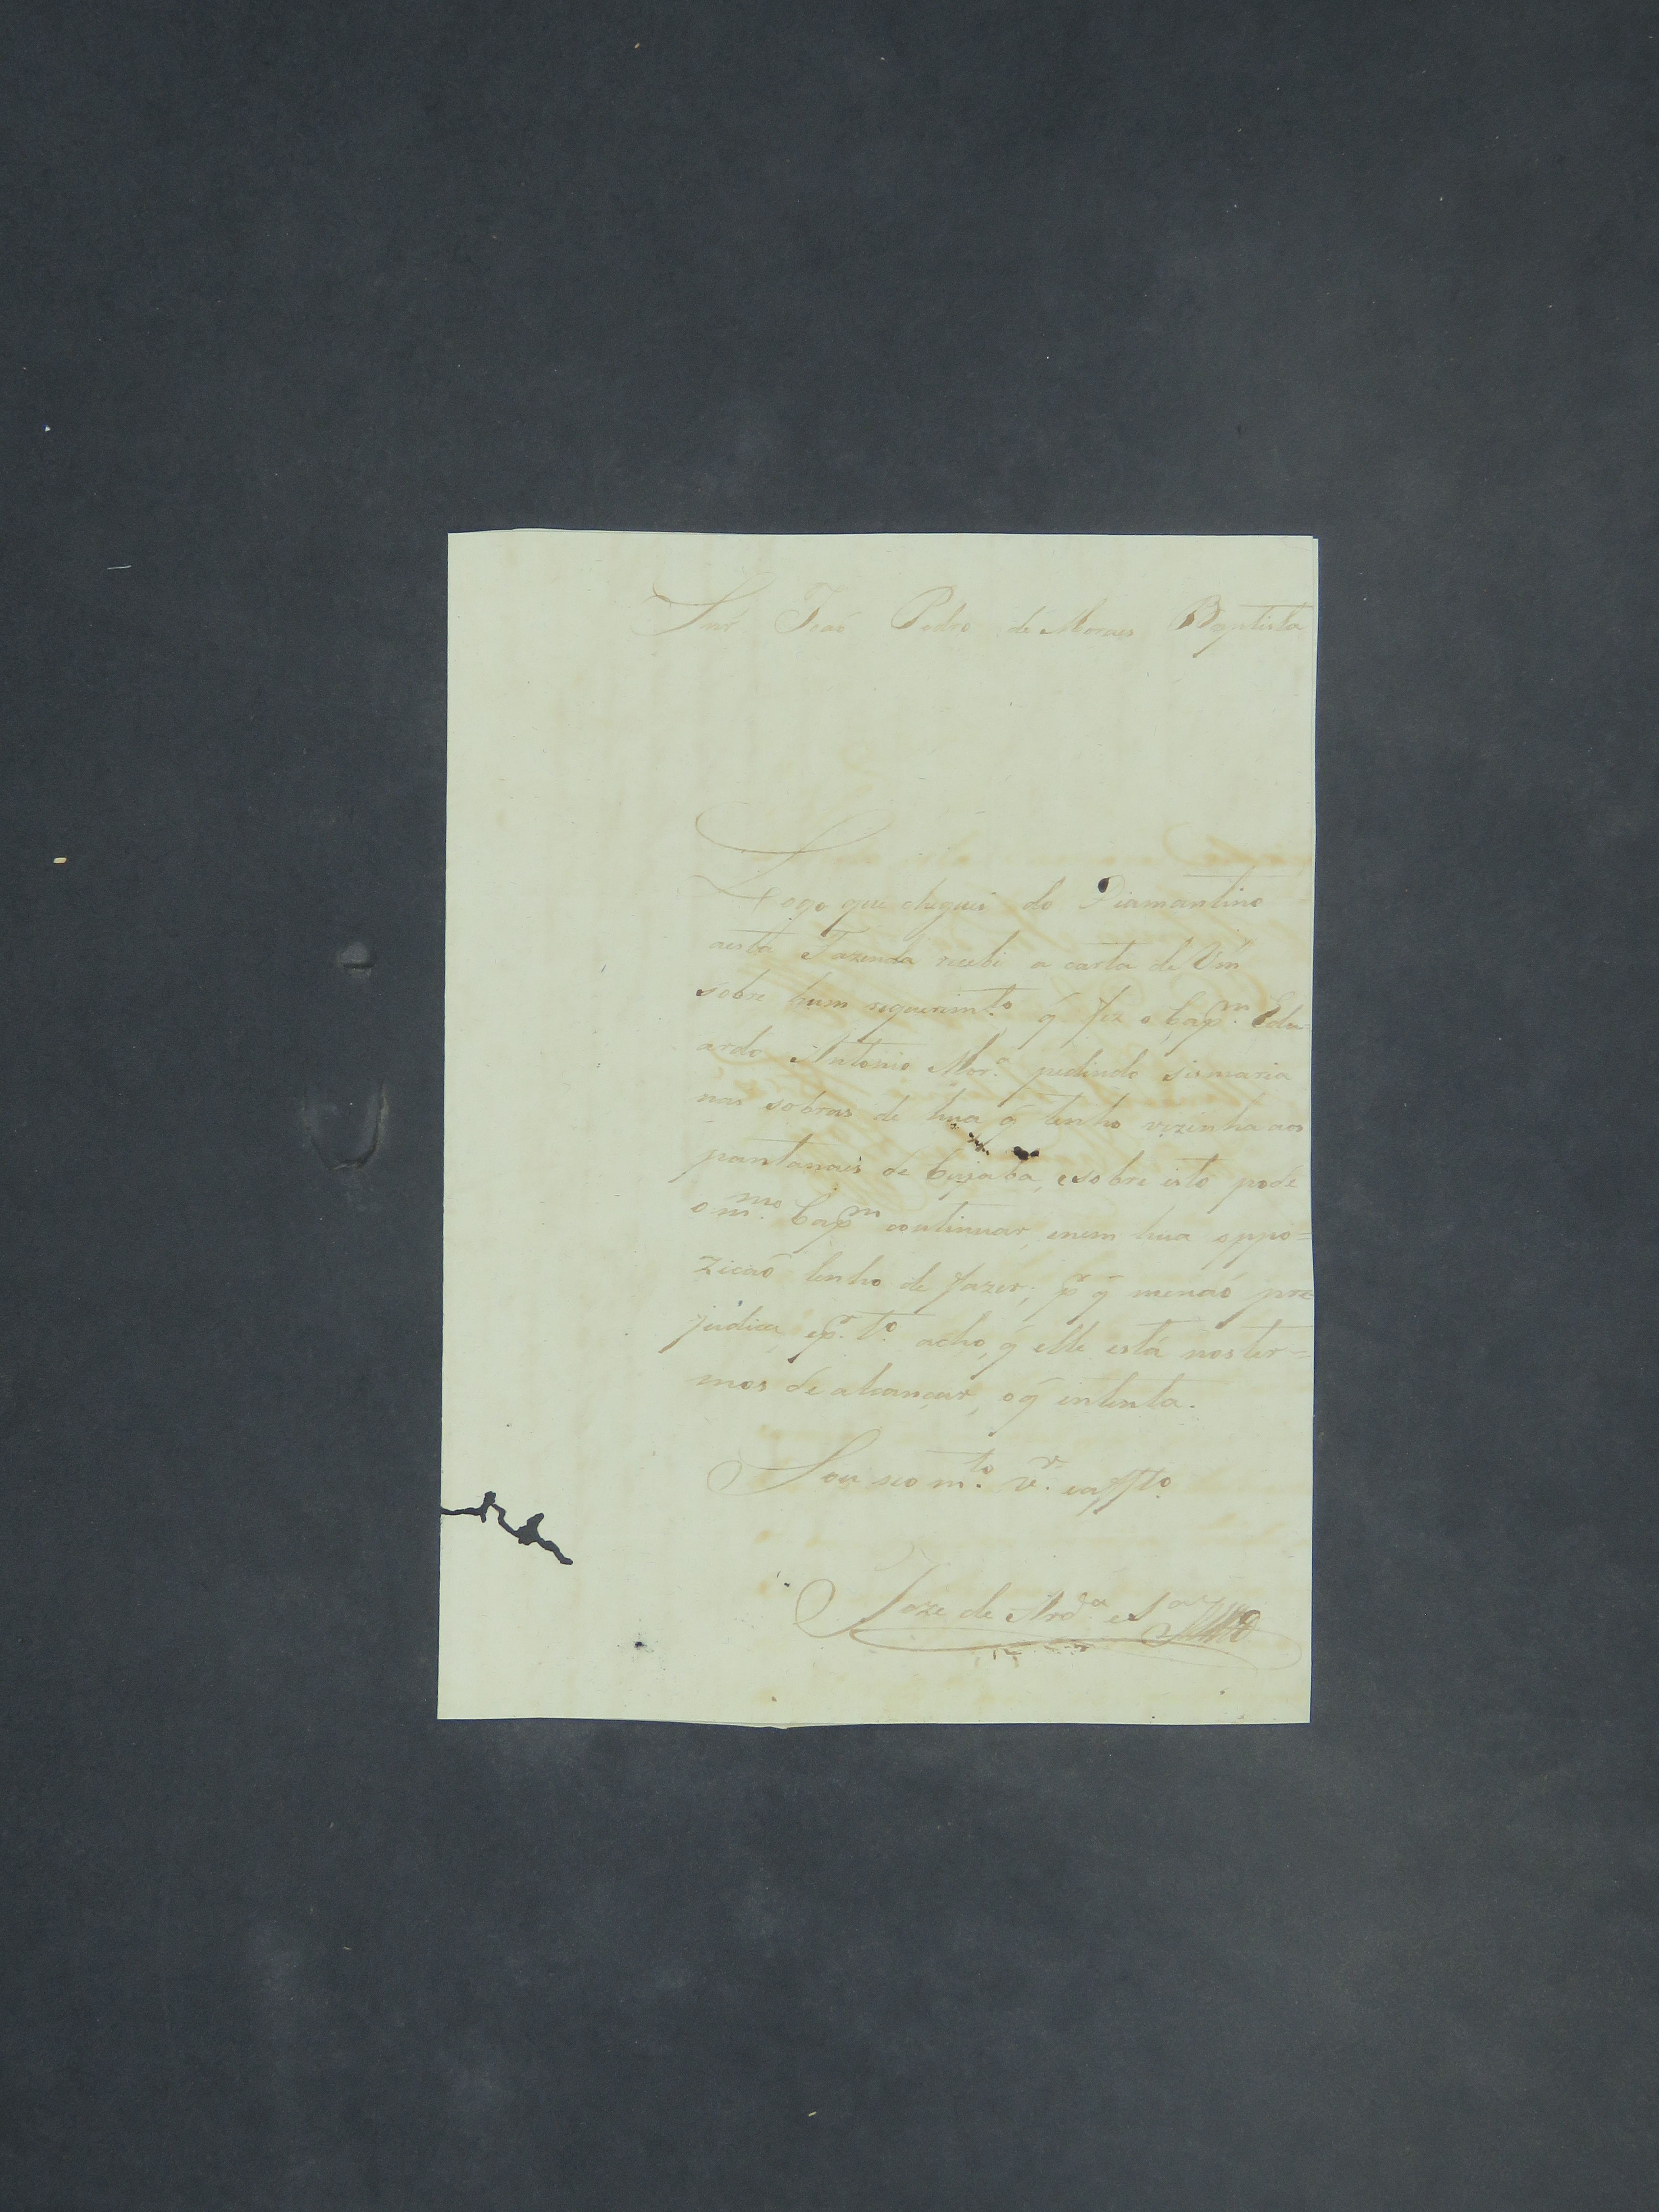 Snr̃ Joaõ Pedro de Moraes Baptista
Logo que cheguei do Diamantino
aesta Fazenda recebi a carta de Vm̃
sobre hum requerimto. q̃ fez o Capm. Edu-
ardo Antonio Morª. pedindo sismaria
nas sobras de hua q̃ tenho vezinha aos
pantanais de Cujaba, esobre isto pode
o mmo. Capm continuar, enem hua oppo=
zicaõ tenho de fazer; pr q̃ menaõ pre
judica, epr. to. acho, q̃ elle está nos ter=
mos de alcançar, oq̃ intenta.
Sou seo mto. vr. eaffto.
Joze de Arda e